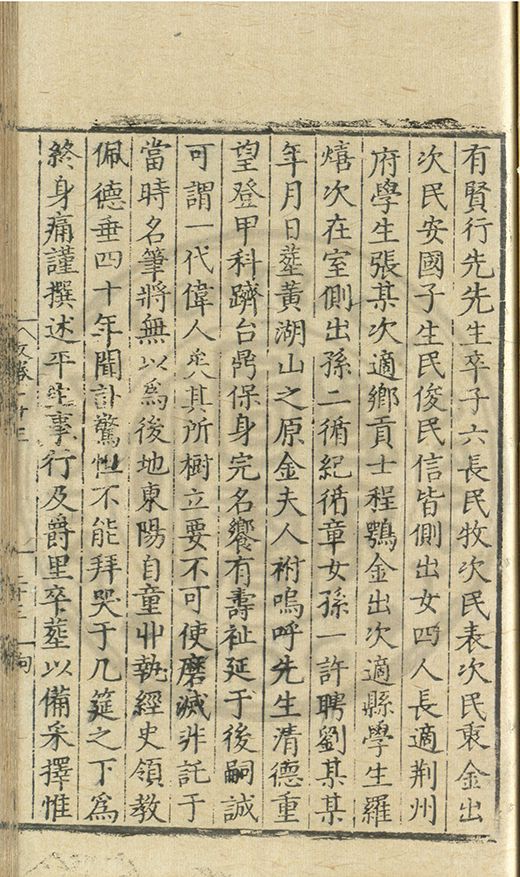 有賢行先先生卒子六長民牧次民表次民秉金出
次民安國子生民俊民信皆側出女四人長適荆州
府學生張某次適鄉貢士程鶚金出次適縣學生羅
熺次在室側出孫二循紀循章女孫一許聘劉某某
年月日塟黃湖山之原金夫人祔嗚呼先生清德重
望登甲科躋台鼎保身完名饗有壽祉延于後嗣誠
可謂一代偉人矣其所樹立要不可使磨滅非託于
當時名筆將無以爲後地東陽自童丱執經史領教
佩德垂四十年聞訃驚怛不能拜哭于几筵之下爲
終身痛謹撰述平生事行及爵里卒塟以備采擇惟